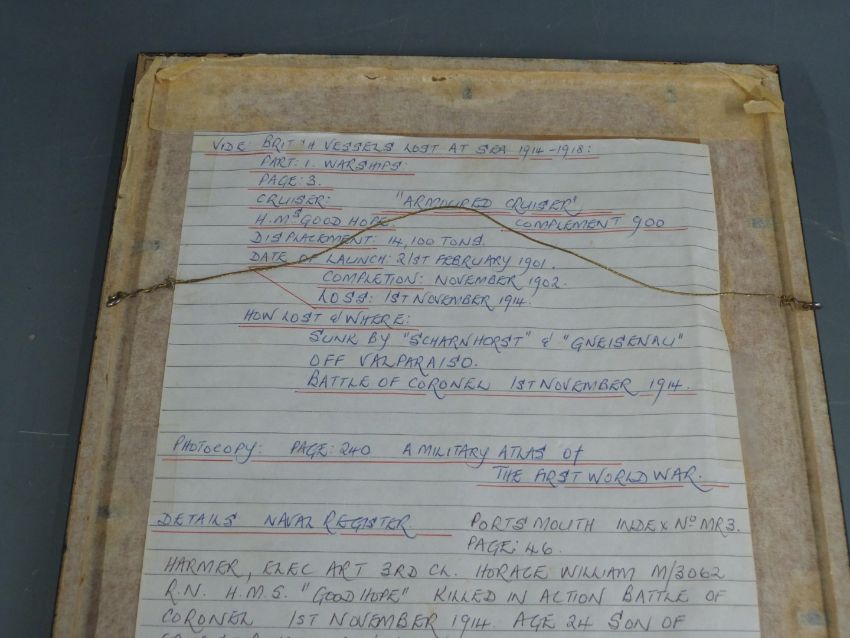 VIDE: BRITISH VESSELS LOST AT SEA 1914-1918:
PART: 1. WARSHIPS:
PAGE: 3.
CRUISER: "ARMOURED CRUISER"
H.Ms GOOD HOPE. COMPLEMENT 900
DISPLACEMENT: 14,100 TONS.
DATE OF LAUNCH: 21ST FEBRUARY 1901.
COMPLETION: NOVEMBER 1902.
LOSS: 1ST NOVEMBER 1914.
HOW LOST & WHERE:
SUNK BY "SCHARNHORST" & "GNEISENAU"
OFF VALPARAISO.
BATTLE OF CORONEL 1ST NOVEMBER 1914.
PHOTOCOPY: PAGE: 240 A MILITARY ATLAS Of
THE FIRST WORLD WAR.
DETAILS NAVAL REGISTER. PORTSMOUTH INDEX No MR3.
PAGE: 46.
HARMER, ELEC ART 3RD CL. HORACE WILLIAM M/3062
R.N. H.M.S. "GOOD HOPE" KILLED IN ACTION BATTLE OF
CORONEL 1ST NOVEMBER 1914. AGE 24 SON OF